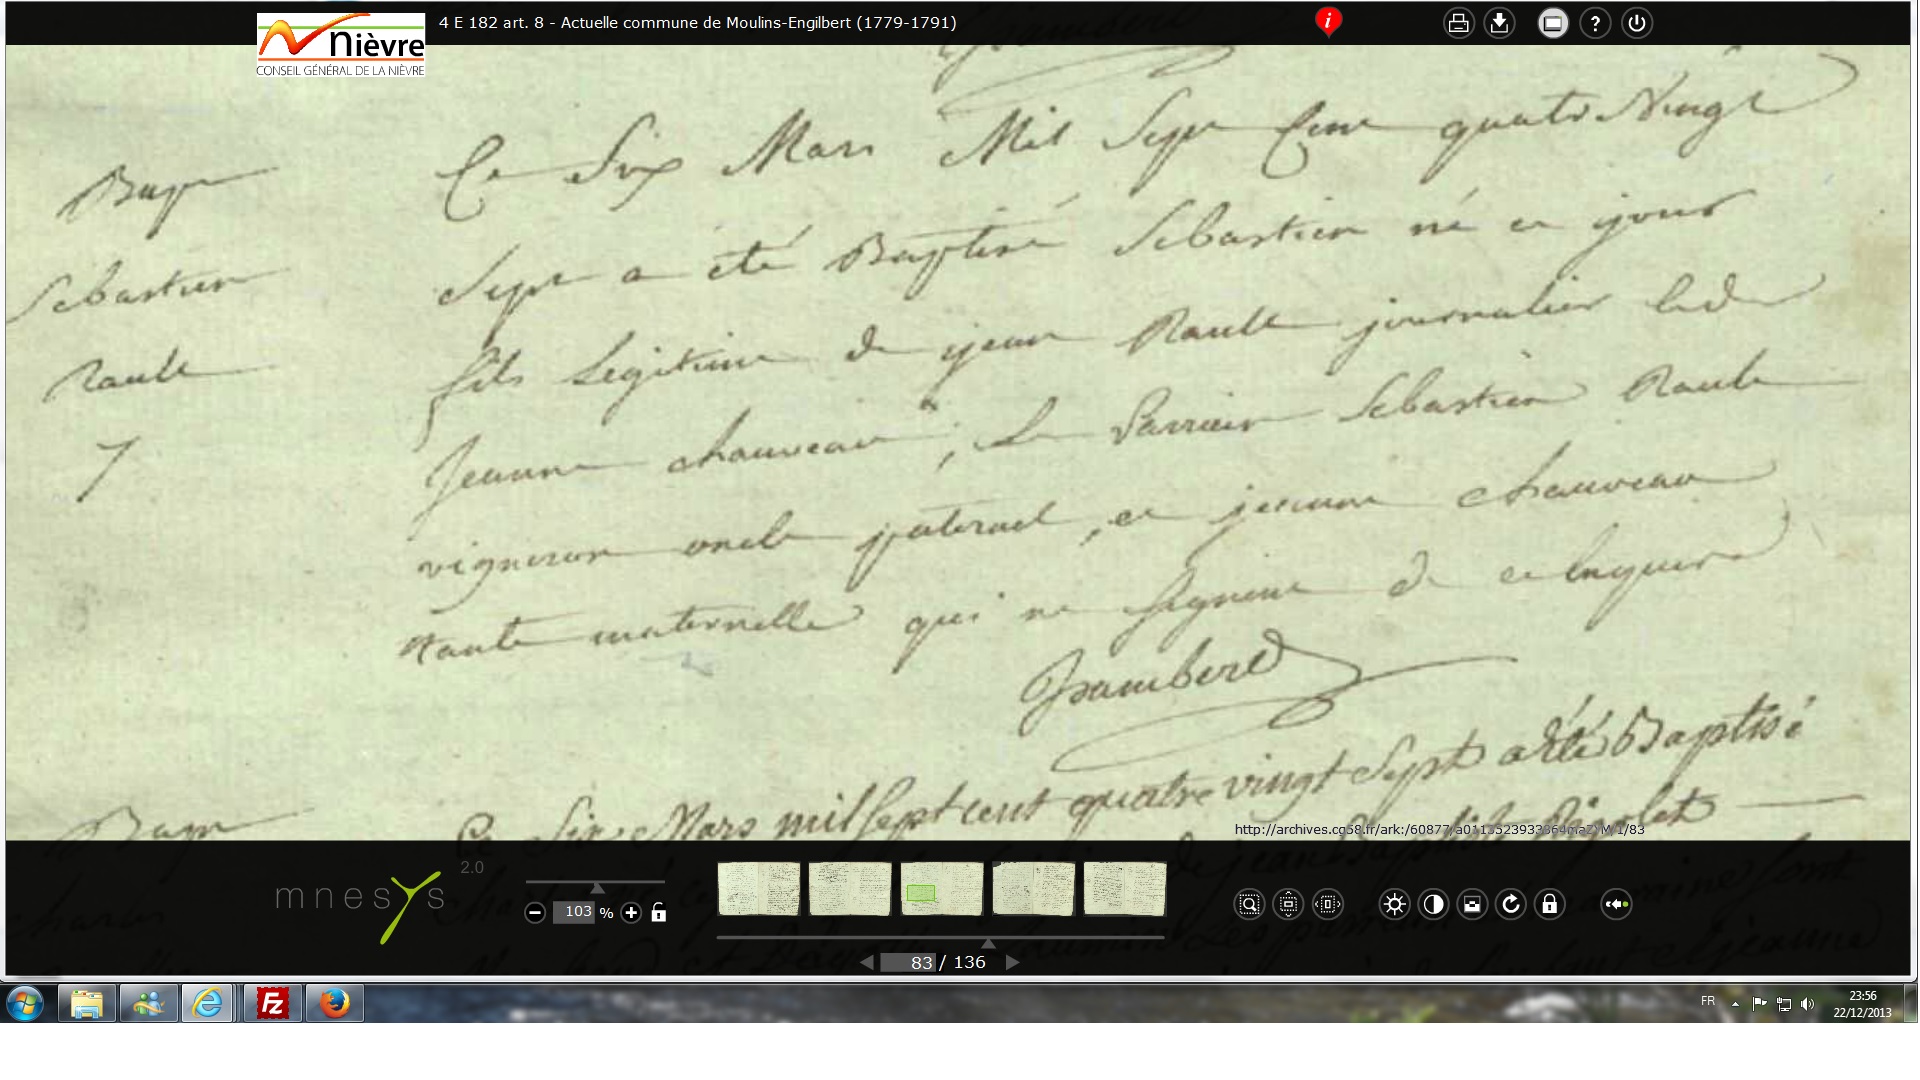 4 E 182 art. 8 - Actuelle commune de Moulins-Engilbert (1779-1791)
Nièvre
CONSEIL GÉNÉRAL DE LA NIÈVRE
Bap
Sebastien
Rault
7
Ce Six Mars Mil Sept Cent quatre Vingt
Sept a été Baptisé Sebastien né ce jour
fils Légitime de jean Rault journalier et de
Jeanne chauveau, Le Parrein Sebastien Rault
vigneron oncle paternel, et jeanne chauveau
tante maternelle qui ne signent de ce Enquis
Isambert
Bap
Ce Six Mars mil sept cent quatre vingt Sept a été Baptisé
http://archives.cg58.fr/ark:/60877/
/1/83
mnesys 2.0
103 %
83 / 136
FR
23:56
22/12/2013